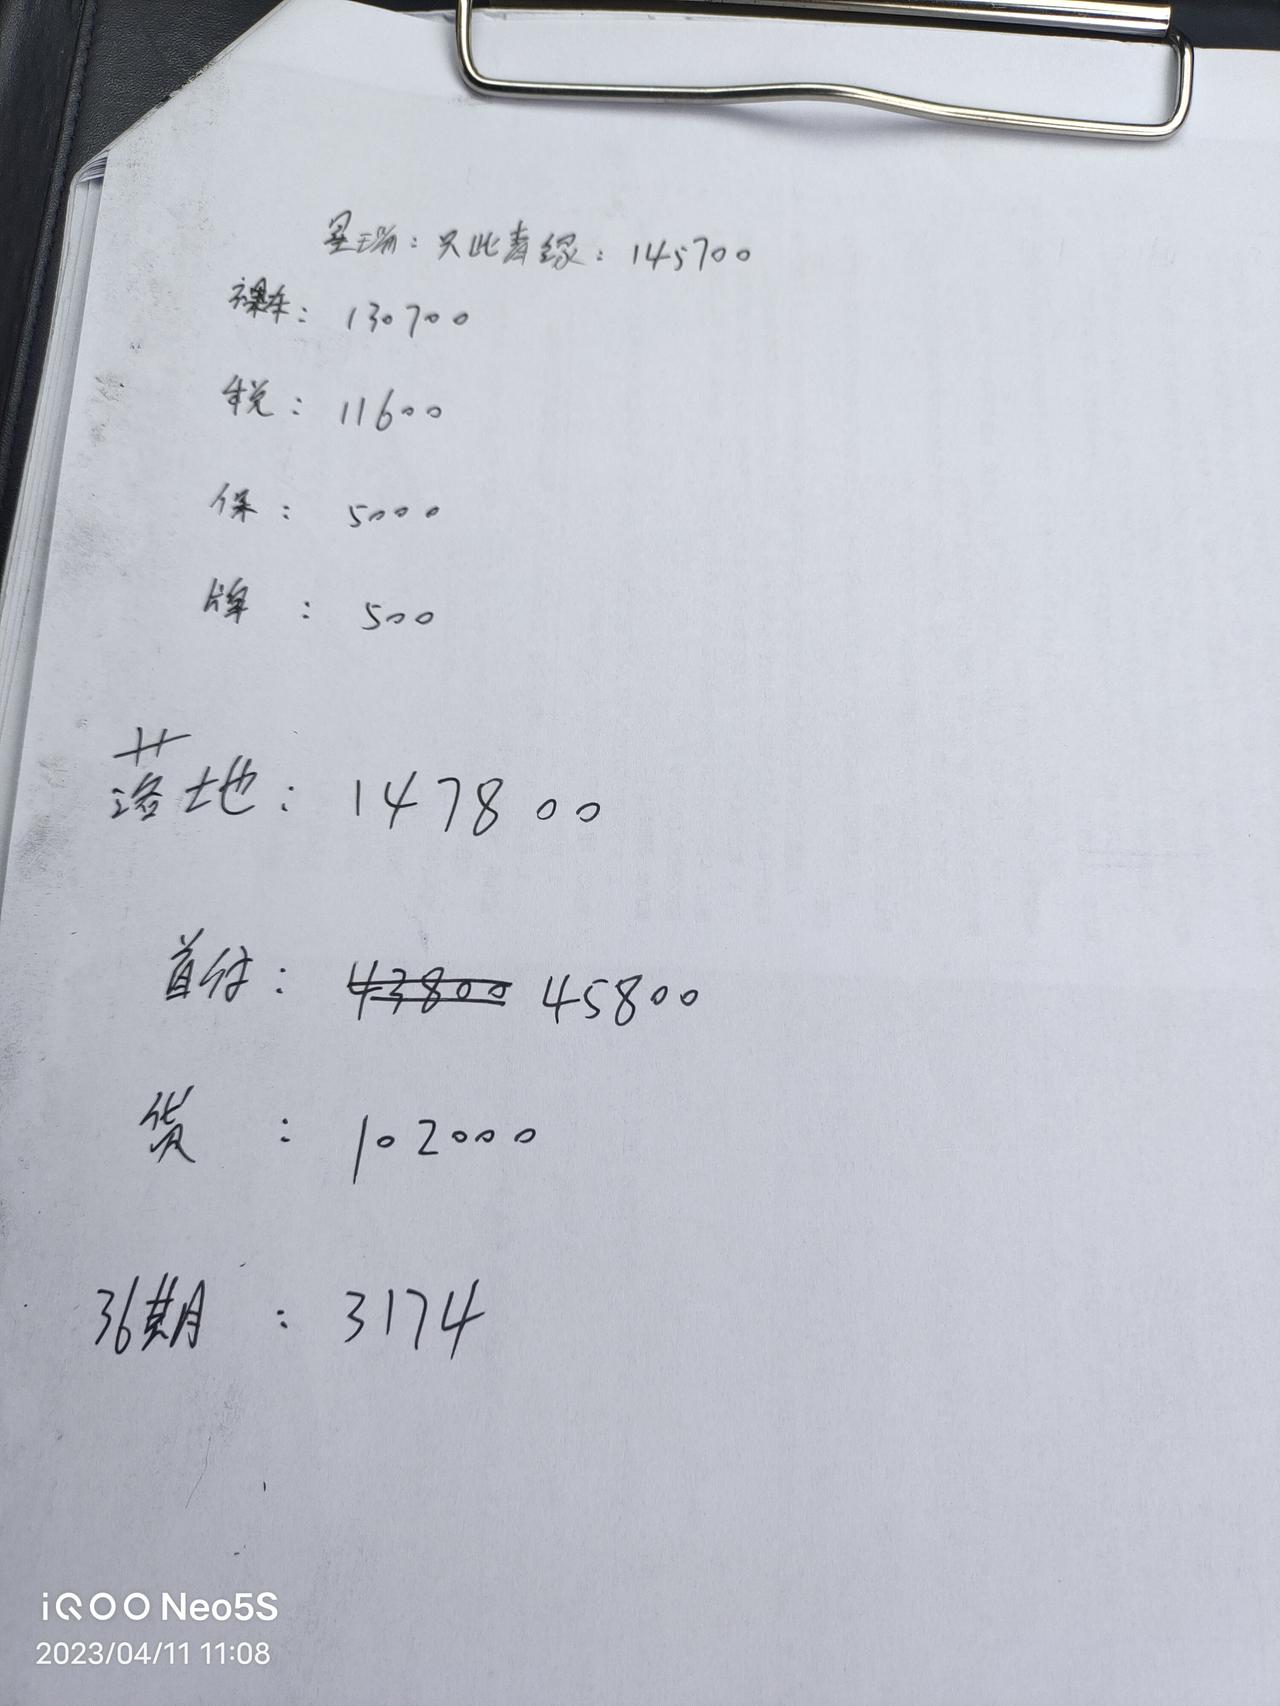 星瑞：只此青绿：145700
裸车：130700
税：11600
保：5000
牌：500
落地：147800
首付：43800 45800
贷：102000
36期：3174
iQOO Neo5S
2023/04/11 11:08